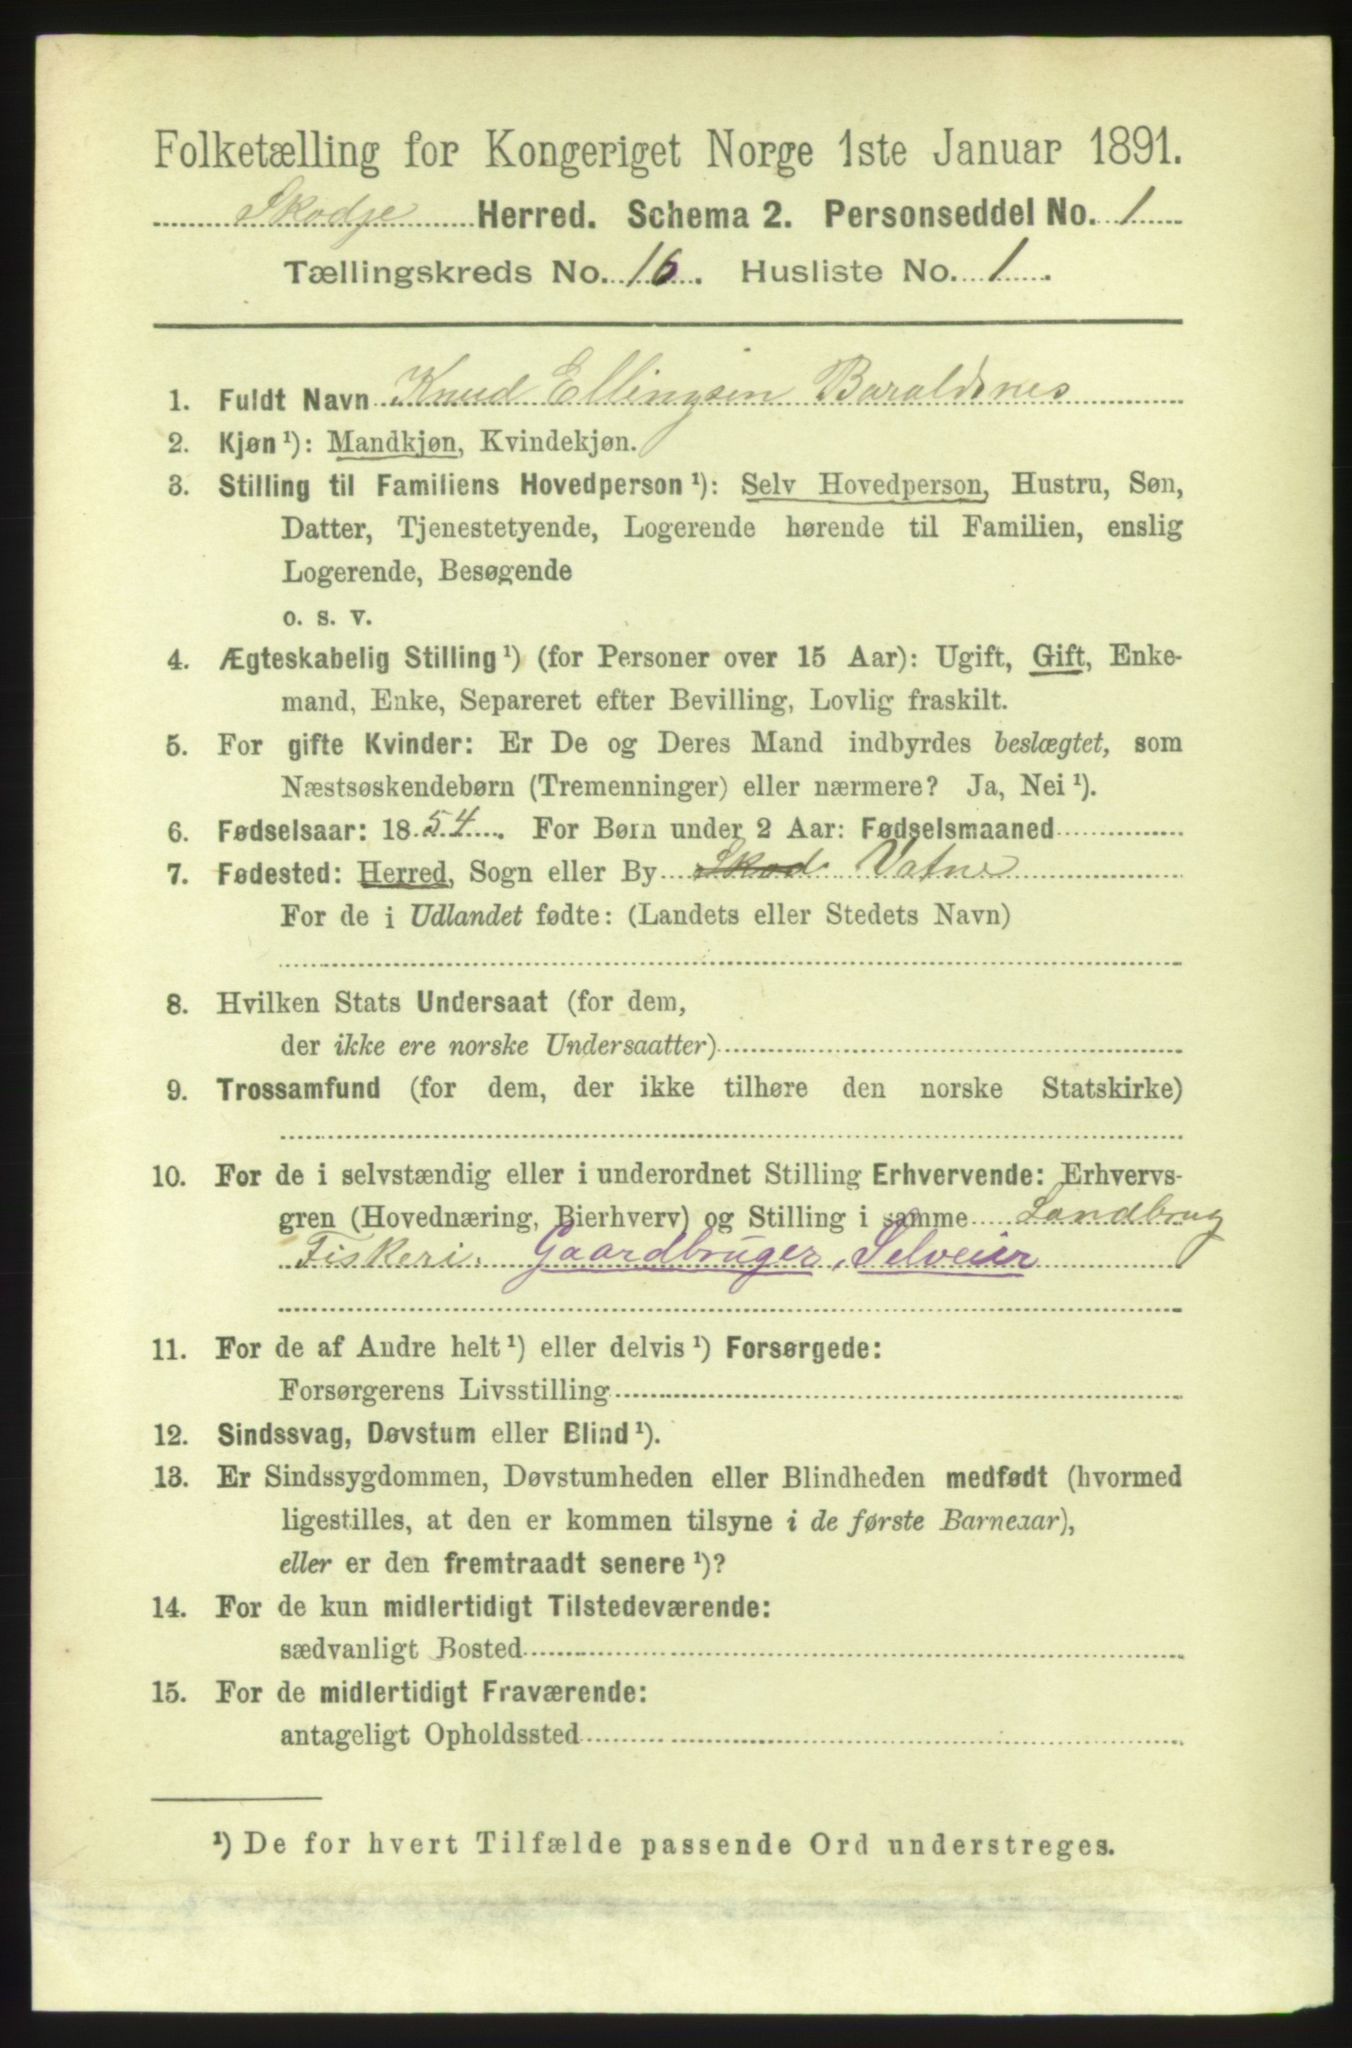 Folketælling for Kongeriget Norge 1ste Januar 1891.
Skodje Herred. Schema 2. Personseddel No. 1
Tællingskreds No. 16. Husliste No. 1.
1. Fuldt Navn Knud Ellingsen Baraldsnes
2. Kjøn¹): Mandkjøn, Kvindekjøn.
3. Stilling til Familiens Hovedperson¹): Selv Hovedperson, Hustru, Søn,
Datter, Tjenestetyende, Logerende hørende til Familien, enslig
Logerende, Besøgende
o. s. v.
4. Ægteskabelig Stilling¹) (for Personer over 15 Aar): Ugift, Gift, Enke-
mand, Enke, Separeret efter Bevilling, Lovlig fraskilt.
5. For gifte Kvinder: Er De og Deres Mand indbyrdes beslægtet, som
Næstsøskendebørn (Tremenninger) eller nærmere? Ja, Nei¹).
6. Fødselsaar: 1854. For Børn under 2 Aar: Fødselsmaaned
7. Fødested: Herred, Sogn eller By Skod Vatne
For de i Udlandet fødte: (Landets eller Stedets Navn)
8. Hvilken Stats Undersaat (for dem,
der ikke ere norske Undersaatter)
9. Trossamfund (for dem, der ikke tilhøre den norske Statskirke)
10. For de i selvstændig eller i underordnet Stilling Erhvervende: Erhvervs-
gren (Hovednæring, Bierhverv) og Stilling i samme Landbrug
Fiskeri. Gaardbruger, Selveier
11. For de af Andre helt¹) eller delvis¹) Forsørgede:
Forsørgerens Livsstilling
12. Sindssvag, Døvstum eller Blind¹).
13. Er Sindssygdommen, Døvstumheden eller Blindheden medfødt (hvormed
ligestilles, at den er kommen tilsyne i de første Barneaar),
eller er den fremtraadt senere¹)?
14. For de kun midlertidigt Tilstedeværende:
sædvanligt Bosted
15. For de midlertidigt Fraværende:
antageligt Opholdssted
¹) De for hvert Tilfælde passende Ord understreges.